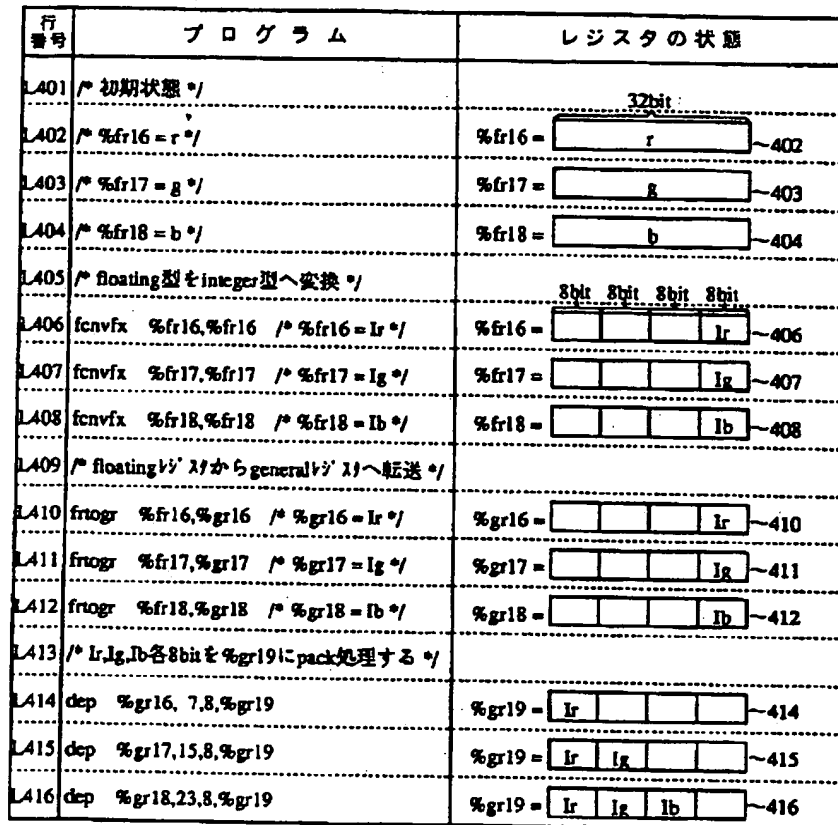 行番号 プログラム レジスタの状態
L401 /* 初期状態 */
32bit
L402 /* %fr16 = r */ %fr16 = r ~402
L403 /* %fr17 = g */ %fr17 = g ~403
L404 /* %fr18 = b */ %fr18 = b ~404
L405 /* floating型をinteger型へ変換 */
8bit 8bit 8bit 8bit
L406 fcnvfx %fr16,%fr16 /* %fr16 = Ir */ %fr16 = Ir ~406
L407 fcnvfx %fr17,%fr17 /* %fr17 = Ig */ %fr17 = Ig ~407
L408 fcnvfx %fr18,%fr18 /* %fr18 = Ib */ %fr18 = Ib ~408
L409 /* floatingレジスタからgeneralレジスタへ転送 */
L410 frtogr %fr16,%gr16 /* %gr16 = Ir */ %gr16 = Ir ~410
L411 frtogr %fr17,%gr17 /* %gr17 = Ig */ %gr17 = Ig ~411
L412 frtogr %fr18,%gr18 /* %gr18 = Ib */ %gr18 = Ib ~412
L413 /* Ir,Ig,Ib各8bitを%gr19にpack処理する */
L414 dep %gr16, 7,8,%gr19 %gr19 = Ir ~414
L415 dep %gr17,15,8,%gr19 %gr19 = Ir Ig ~415
L416 dep %gr18,23,8,%gr19 %gr19 = Ir Ig Ib ~416